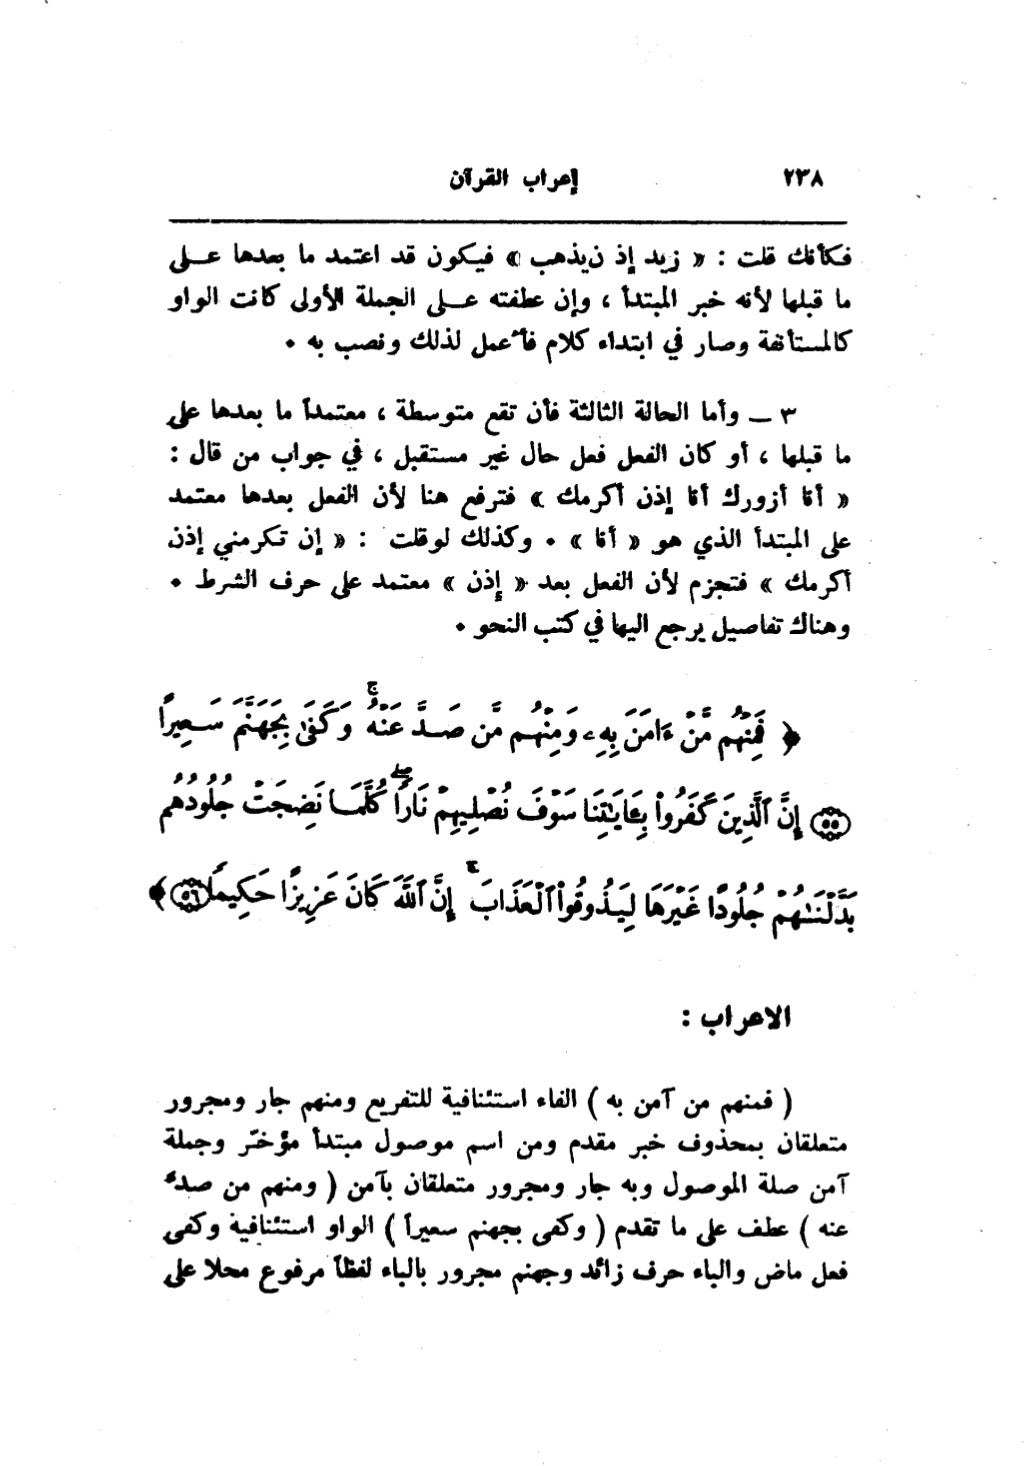 ٢٣٨ إعراب القرآن
فكأنك قلت : « زيد إذ ن يذهب » فيكون قد اعتمد ما بعدها عـلى
ما قبلها لأنه خبر المبتدأ ، وإن عطفته عـلى الجملة الأولى كانت الواو
كالمستأنفة وصار في ابتداء كلام فأعمل لذلك ونصب به ٠
٣ ــ وأما الحالة الثالثة فأن تقع متوسطة ، معتمداً ما بعدها على
ما قبلها ، أو كان الفعل فعل حال غير مستقبل ، في جواب من قال :
« أنا أزورك أنا إذن أكرمك » فترفع هنا لأن الفعل بعدها معتمد
على المبتدأ الذي هو « أنا » ٠ وكذلك لوقلت : « إن تكرمني إذن
أكرمك » فتجزم لأن الفعل بعد « إذن » معتمد على حرف الشرط ٠
وهناك تفاصيل يرجع اليها في كتب النحو ٠
﴿ فَمِنْهُم مَّنْ ءَامَنَ بِهِۦ وَمِنْهُم مَّن صَدَّ عَنْهُ ۚ وَكَفَىٰ بِجَهَنَّمَ سَعِيرًا
﴿٥٥﴾ إِنَّ ٱلَّذِينَ كَفَرُوا۟ بِـَٔايَـٰتِنَا سَوْفَ نُصْلِيهِمْ نَارًا ۖ كُلَّمَا نَضِجَتْ جُلُودُهُم
بَدَّلْنَـٰهُمْ جُلُودًا غَيْرَهَا لِيَذُوقُوا۟ ٱلْعَذَابَ ۗ إِنَّ ٱللَّهَ كَانَ عَزِيزًا حَكِيمًا ﴿٥٦﴾ ﴾
الاعراب :
( فمنهم من آمن به ) الفاء استئنافية للتفريع ومنهم جار ومجرور
متعلقان بمحذوف خبر مقدم ومن اسم موصول مبتدأ مؤخّر وجملة
آمن صلة الموصول وبه جار ومجرور متعلقان بآمن ( ومنهم من صدّ
عنه ) عطف على ما تقدم ( وكفى بجهنم سعيراً ) الواو استئنافية وكفى
فعل ماض والباء حرف زائد وجهنم مجرور بالباء لفظاً مرفوع محلا على